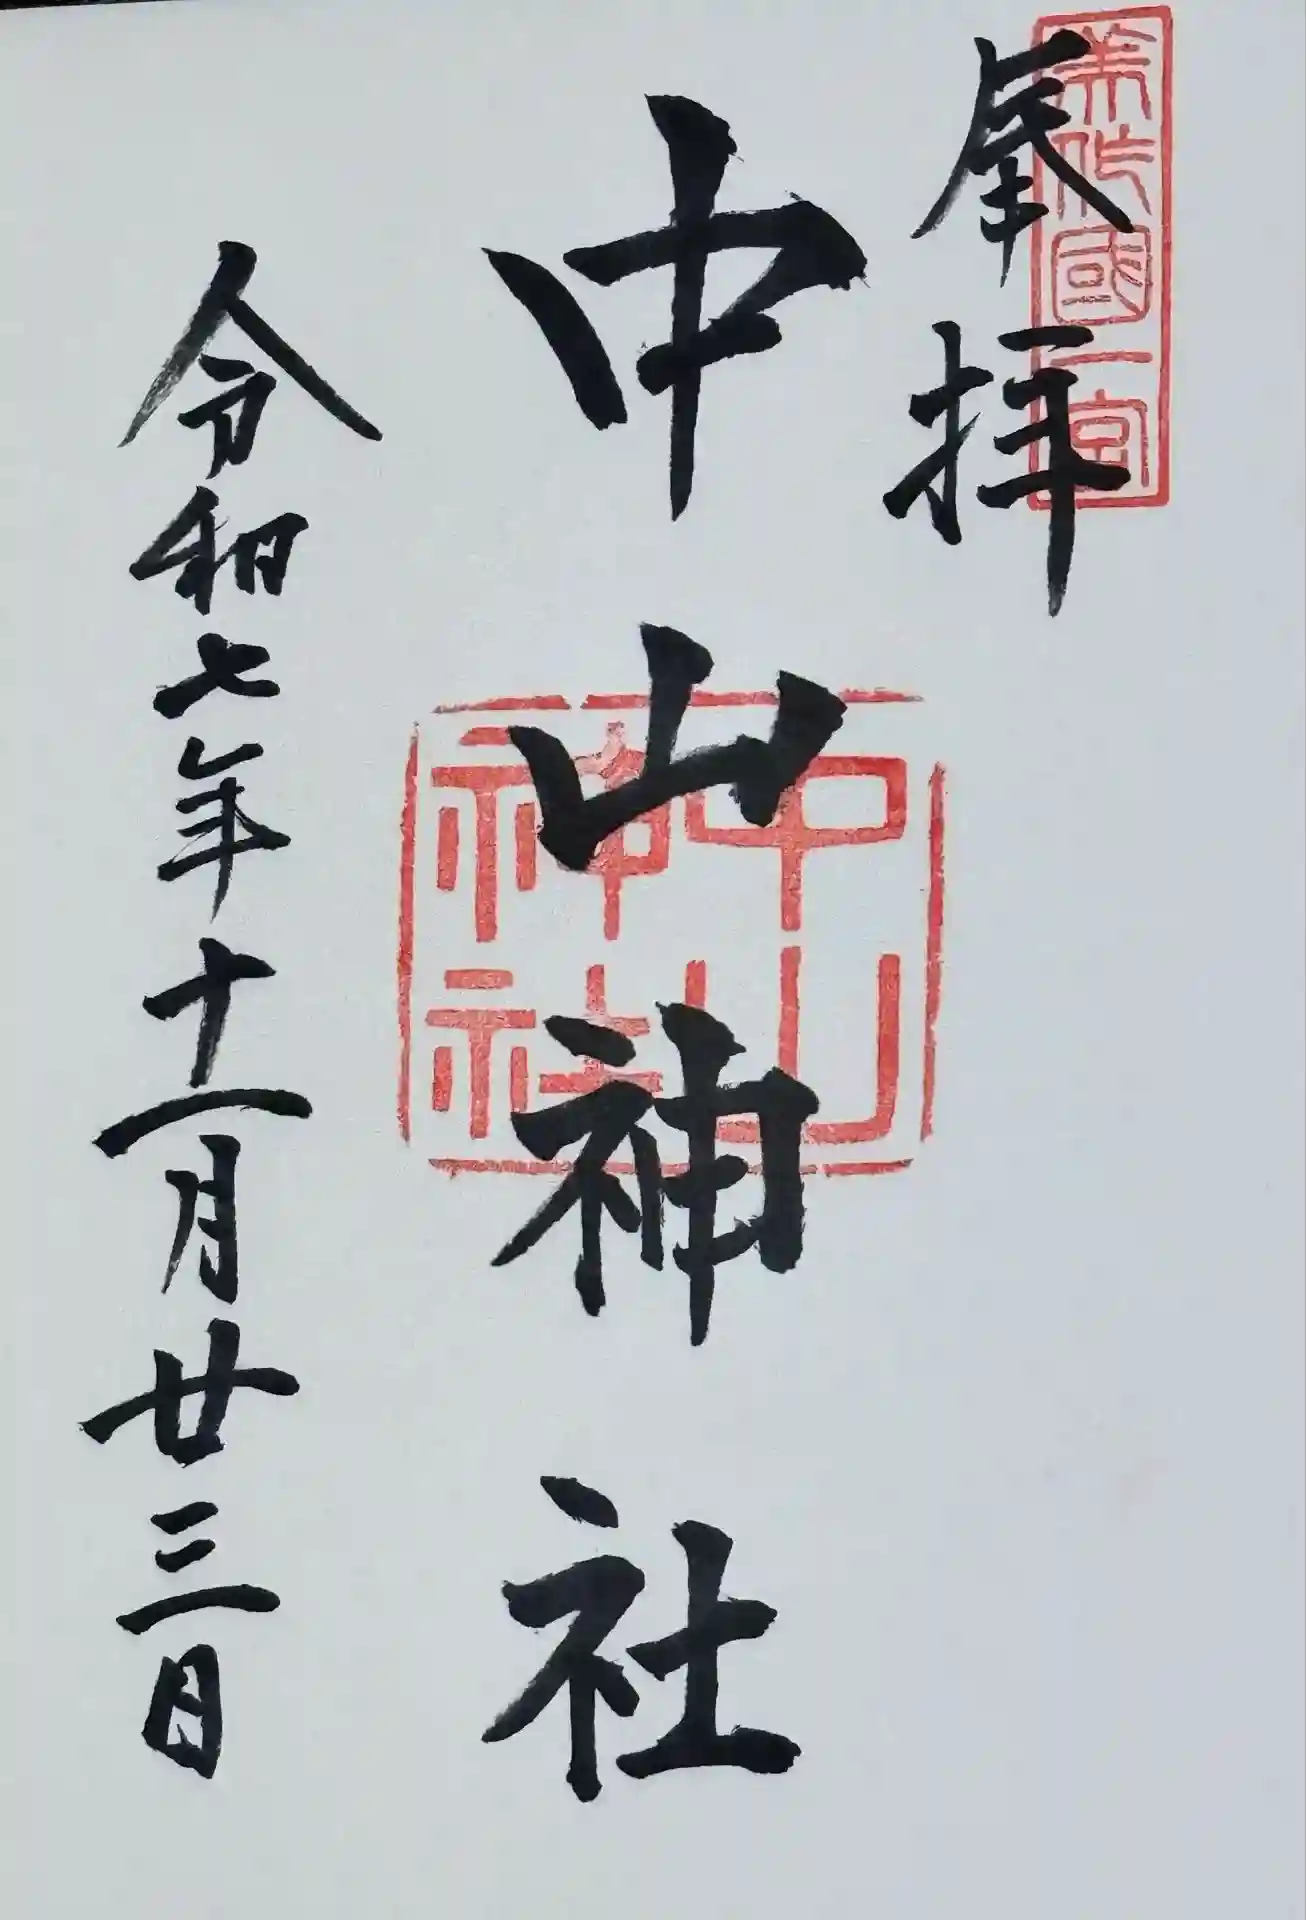 美作國一宮
奉拝
中山神社
中山神社
令和七年十一月廿三日